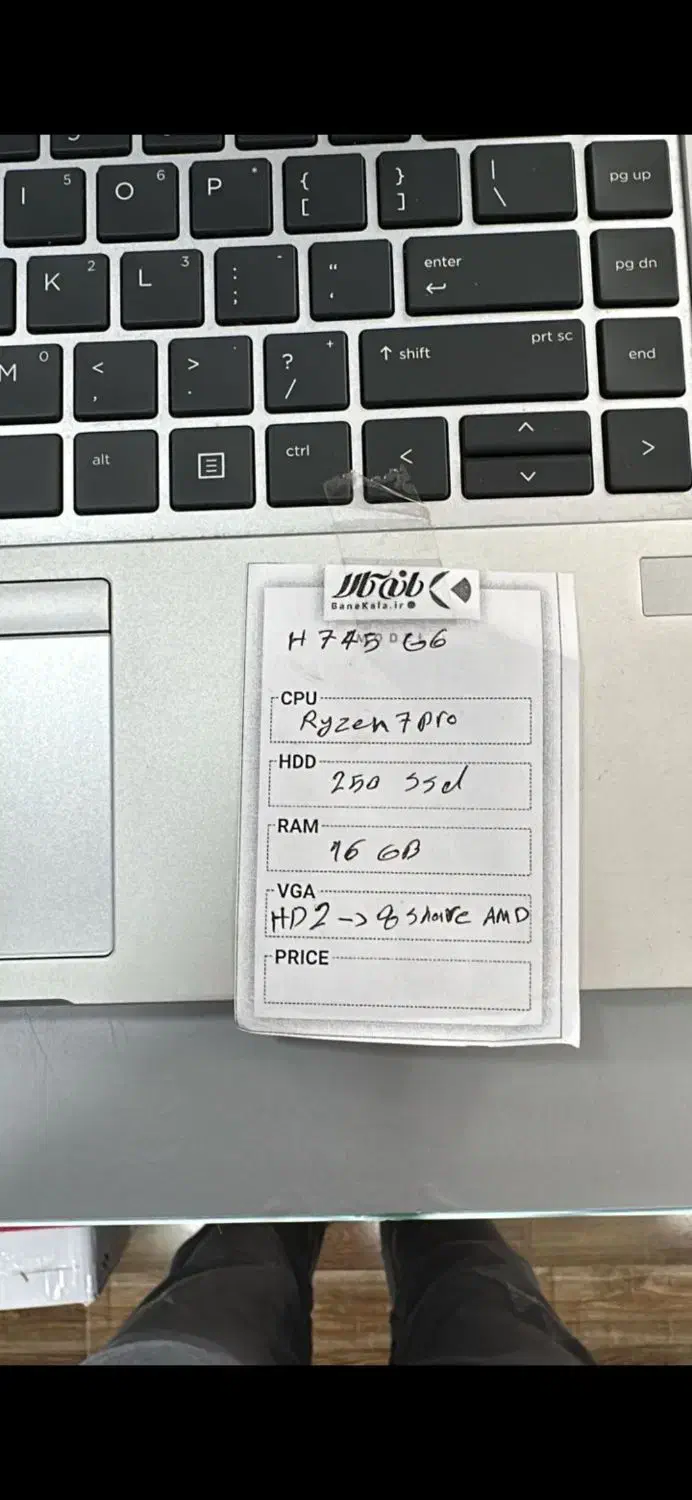 I 5 O 6 P * { [ } ] | \ pg up
K 2 L 3 : ; - " ' enter pg dn
M 0 < , > . ? / + shift prt sc end
alt ctrl < >
بانه کالا
BaneKala.ir
MODEL
H 745 G6
CPU
Ryzen 7 pro
HDD
250 ssd
RAM
16 GB
VGA
HD2 -> 8 share AMD
PRICE